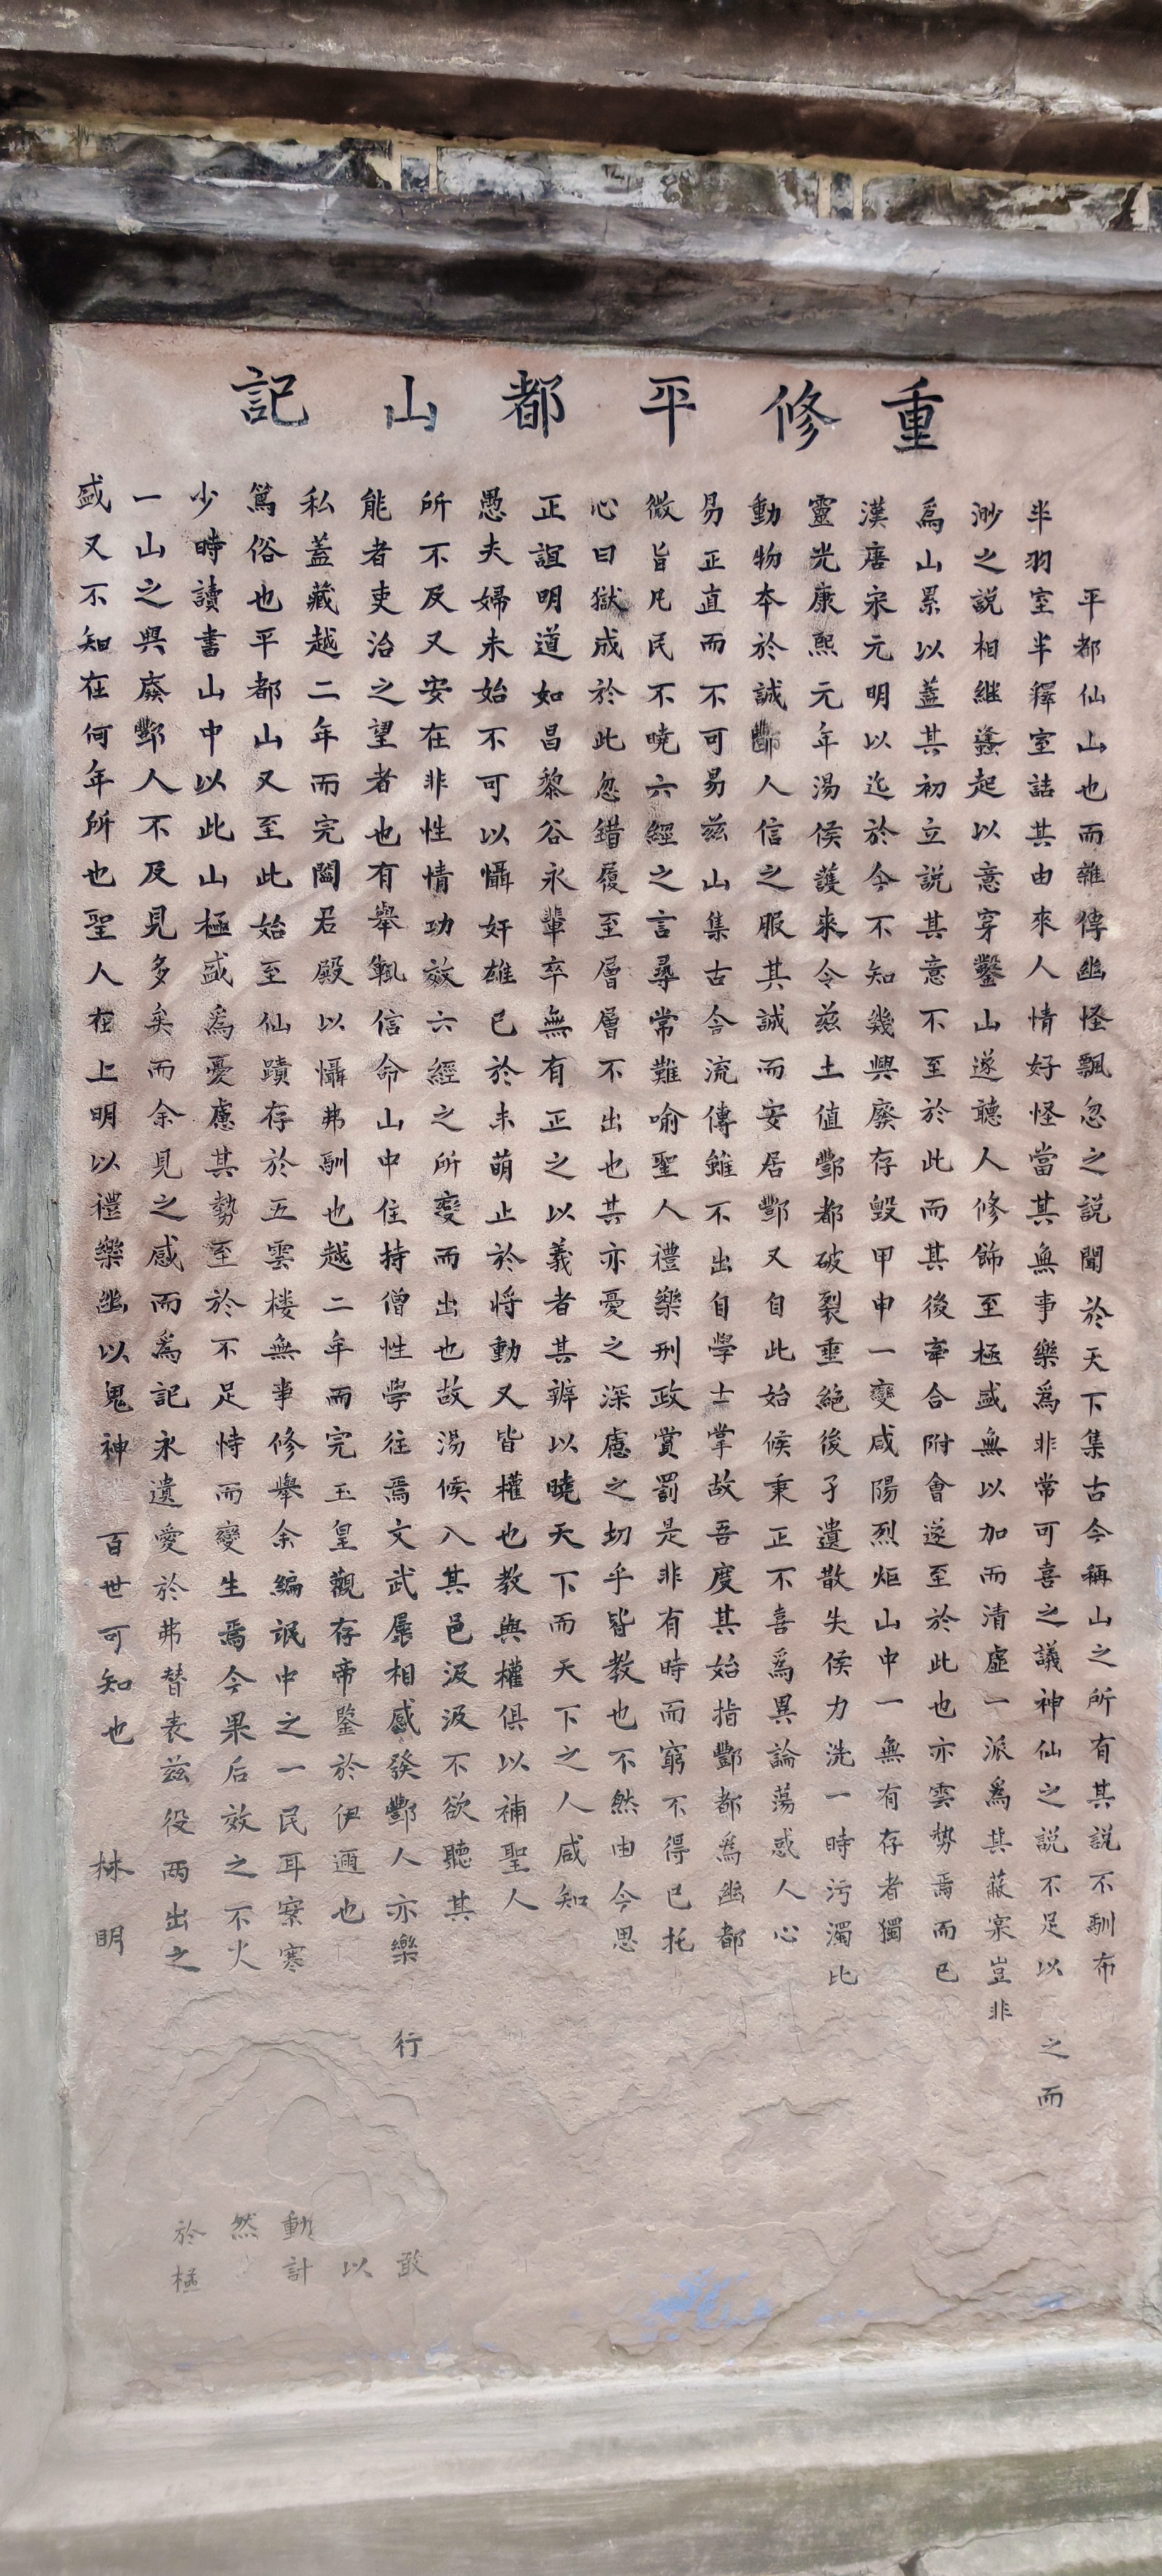 重修平都山記
平都仙山也而雜傳幽怪飄忽之説聞於天下集古今稱山之所有其説不馴布
半羽室半釋室詰其由來人情好怪當其無事樂爲非常可喜之議神仙之説不足以之而
渺之説相繼蠭起以意穿鑿山遂聽人修飾至極盛無以加而清虛一派爲其蔽寀豈非
爲山累以蓋其初立説其意不至於此而其後牽合附會遂至於此也亦雲勢焉而已
漢唐宋元明以迄於今不知幾興廢存毀甲申一變咸陽烈炬山中一無有存者獨
靈光康熙元年湯侯護來令兹土值酆都破裂重絶後孑遺散失侯力洗一時污濁比
動物本於誠酆人信之服其誠而安居酆又自此始候秉正不喜爲異論蕩惑人心
易正直而不可易兹山集古今流傳雖不出自學士掌故吾度其始指酆都爲幽都
微旨凡民不曉六經之言尋常難喻聖人禮樂刑政賞罰是非有時而窮不得已托
心曰獄成於此忽錯履至層層不出也其亦憂之深慮之切乎皆教也不然由今思
正誼明道如昌黎谷永輩卒無有正之以義者其辨以曉天下而天下之人咸知
愚夫婦未始不可以懾奸雄已於未萌止於將動又皆權也教與權俱以補聖人
所不及又安在非性情功效六經之所變而出也故湯候入其邑汲汲不欲聽其
能者吏治之望者也有舉輒信命山中住持僧性學往焉文武展相感發酆人亦樂行敢
私蓋藏越二年而完閻君殿以懾弗馴也越二年而完玉皇觀存帝鑒於伊邇也以
篤俗也平都山又至此始至仙蹟存於五雲楼無事修舉余編氓中之一民耳寀寒動計
少時讀書山中以此山極盛爲憂慮其勢至於不足恃而變生焉今果后效之不火然
一山之興廢酆人不及見多矣而余見之感而爲記永遺愛於弗替表兹役兩出之於極
盛又不知在何年所也聖人在上明以禮樂幽以鬼神百世可知也林明